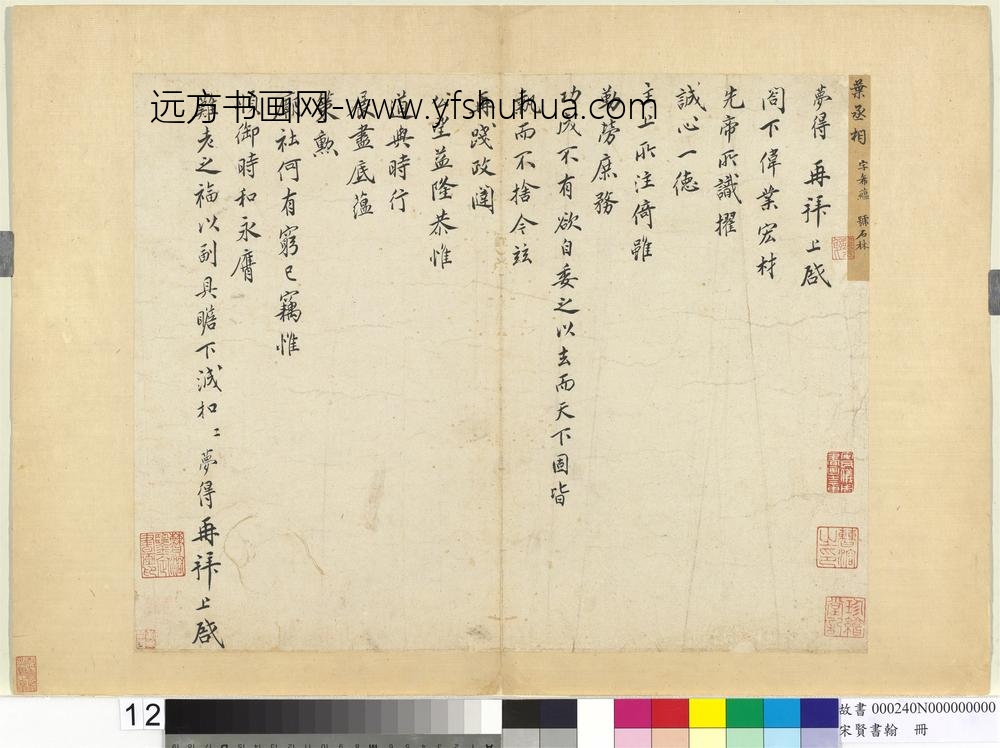 葉丞相
字希蘊 號石林
夢得 再拜上啟
閤下偉業宏材
先帝所識擢
誠心一德
主上所注倚雖
勤勞庶務
功成不有欲自委之以去而天下固皆
而不捨今茲
踐政閫
望益隆恭惟
道與時行
盡底蘊
勲
社何有窮已竊惟
御時和永膺
難老之福以副具瞻下誠扣〻夢得再拜上啟
遠方书画网-www.yfshuhua.com
珍繪堂記
12
故書 000240N000000000
宋賢書翰 冊